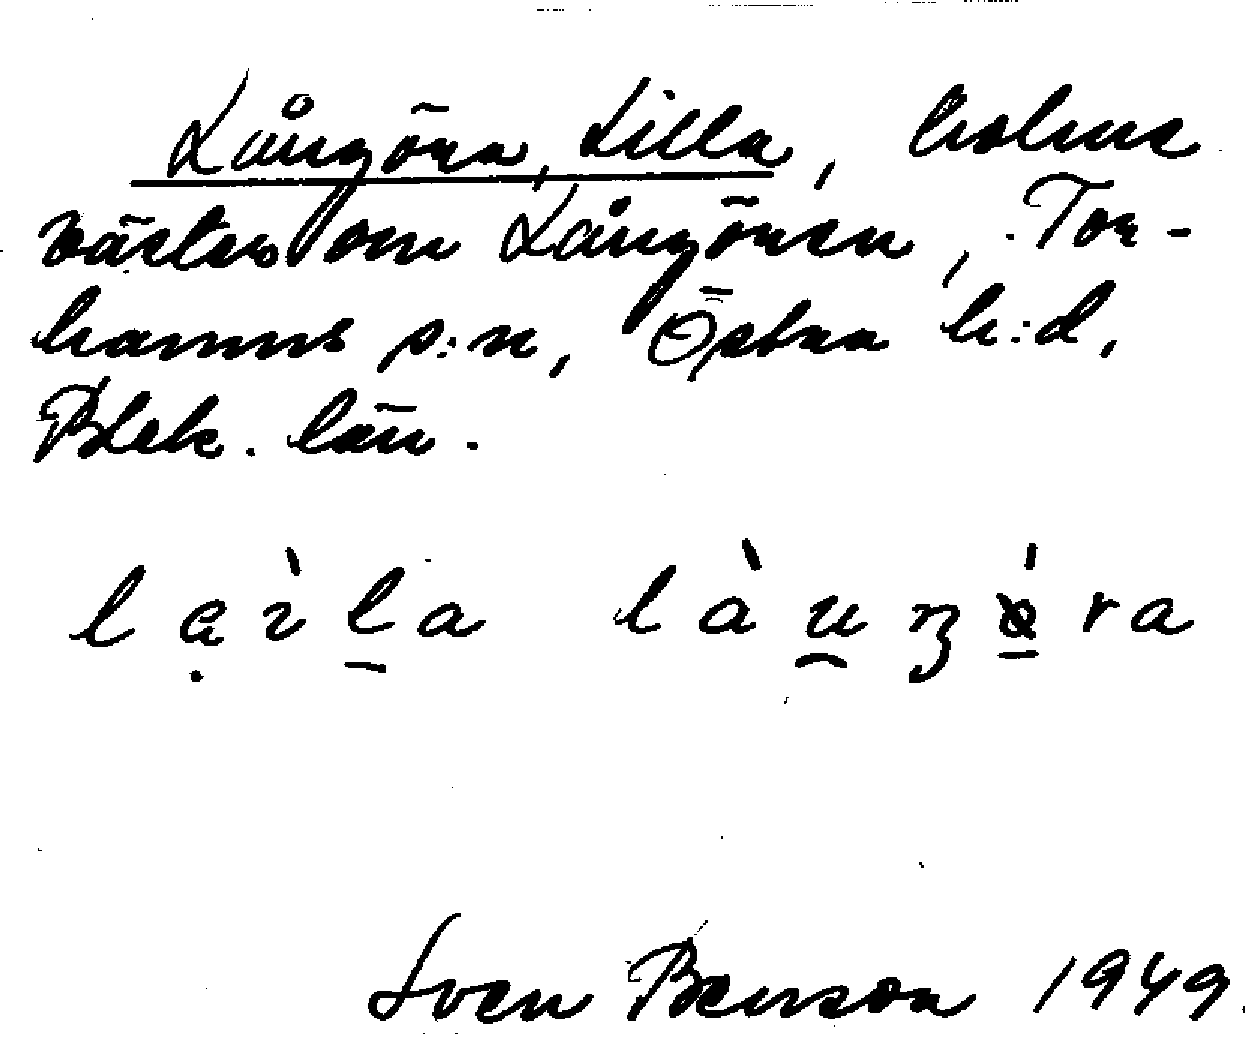 Långöra, Lilla, holme
väster om Långören, Tor-
hamns s:n, Östra h:d,
Blek. län.
Sven Benson 1949.